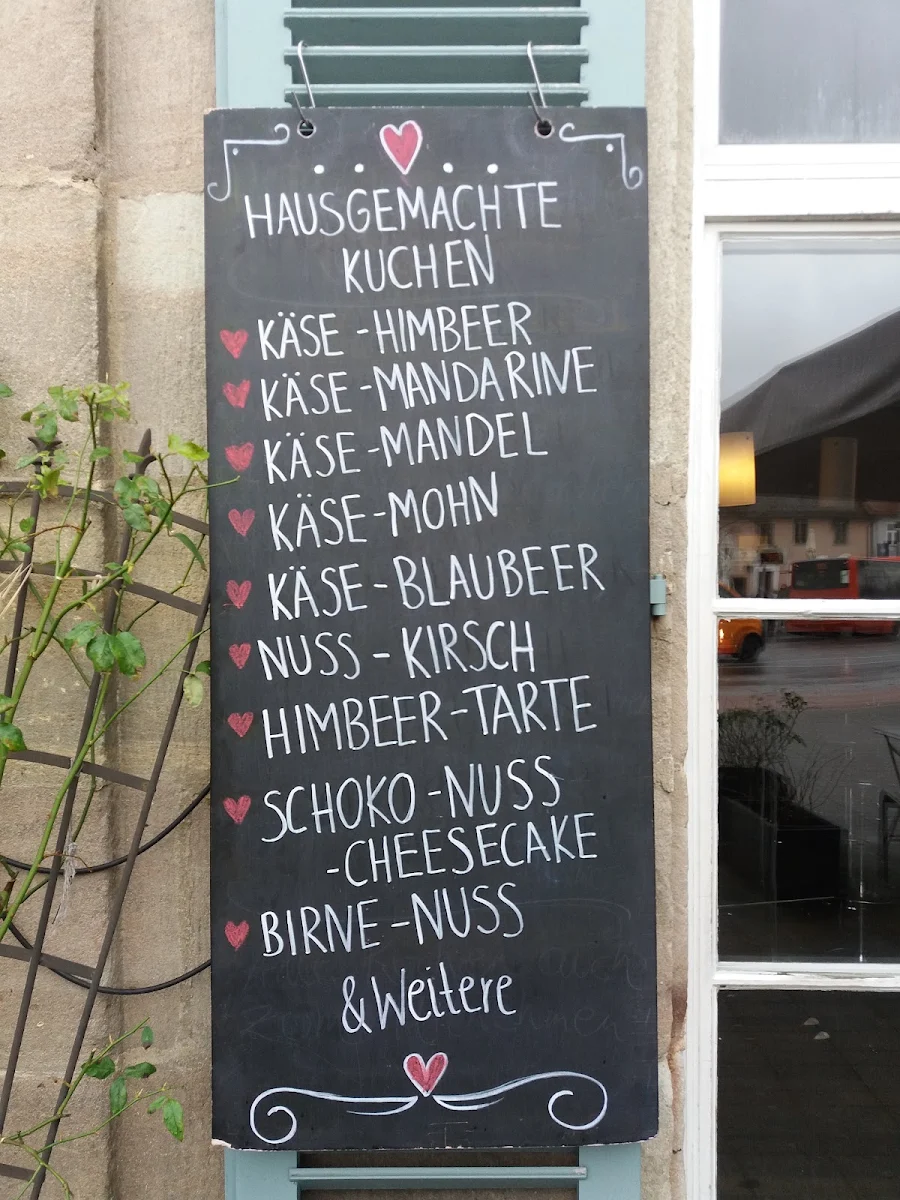 HAUSGEMACHTE
KUCHEN
KÄSE-HIMBEER
KÄSE-MANDARINE
KÄSE-MANDEL
KÄSE-MOHN
KÄSE-BLAUBEER
NUSS-KIRSCH
HIMBEER-TARTE
SCHOKO-NUSS
-CHEESECAKE
BIRNE-NUSS
&Weitere